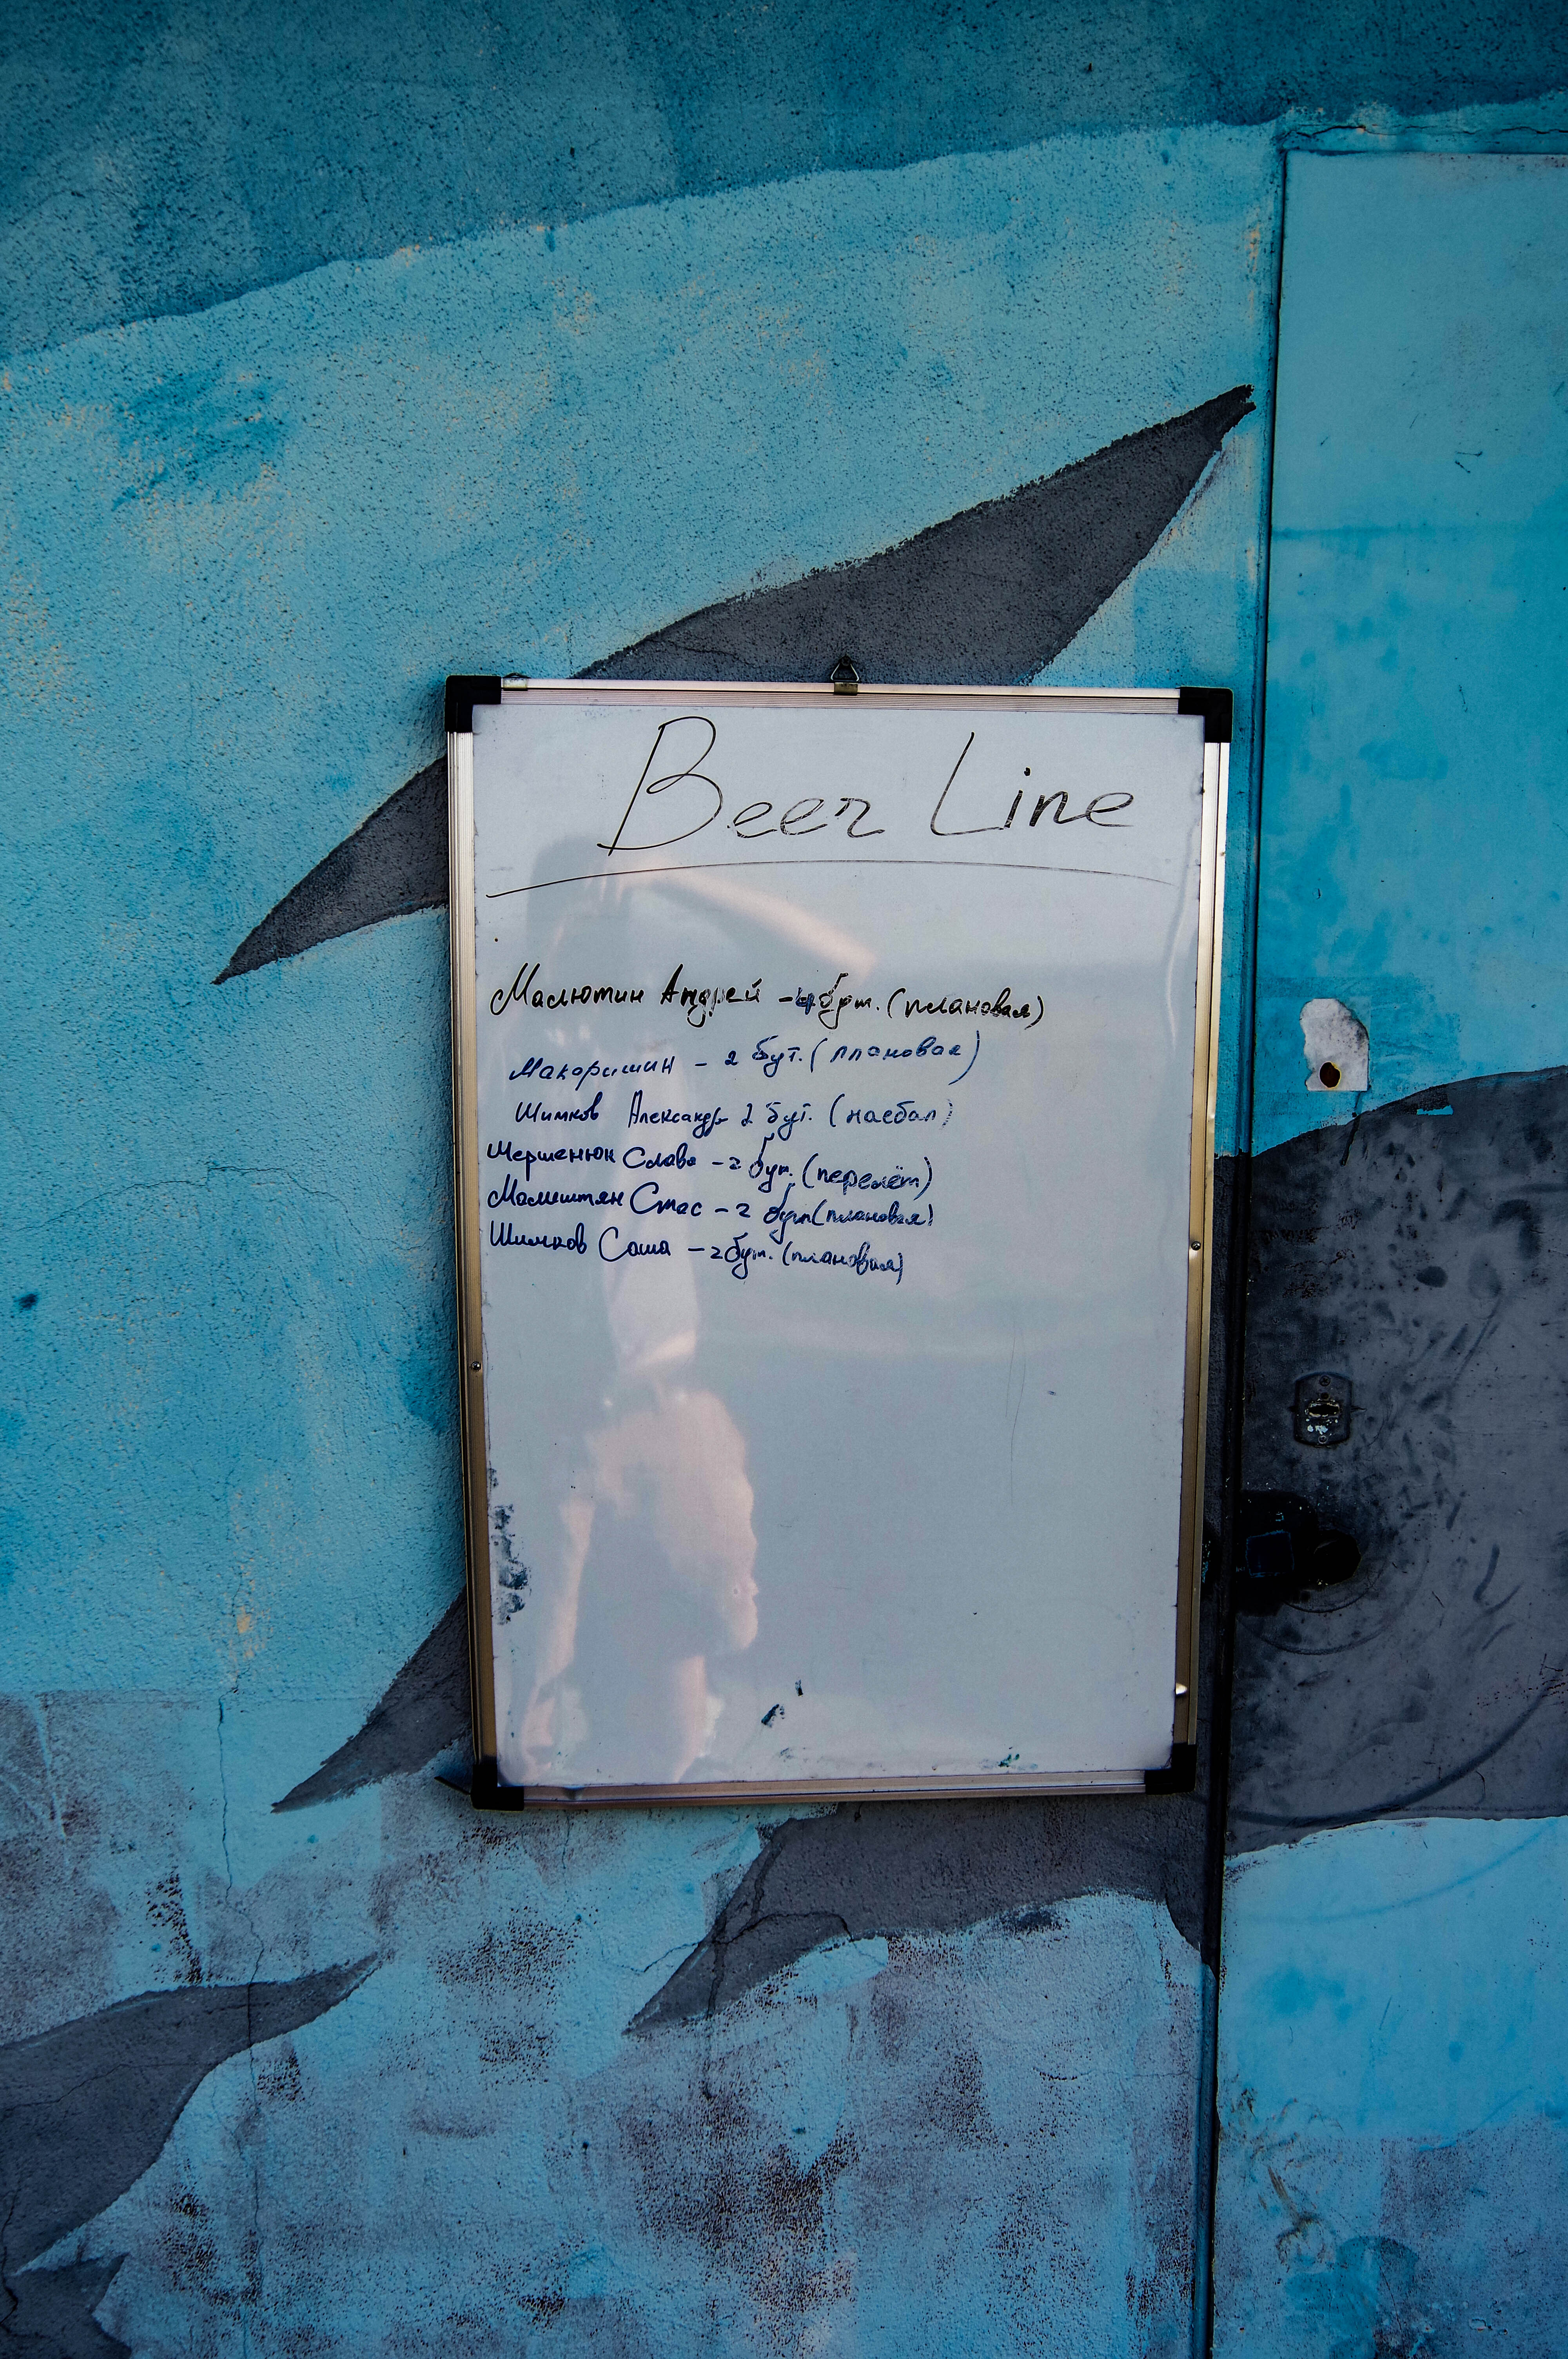 Beer Line
Малютин Андрей - 4 бут. (плановая)
Макоришин - 2 бут. (плановая)
Шимков Александр 2 бут. (наебал)
Шершенюк Слава - 2 бут. (перелёт)
Малиштян Стас - 2 бут (плановая)
Шимков Саша - 2 бут. (плановая)